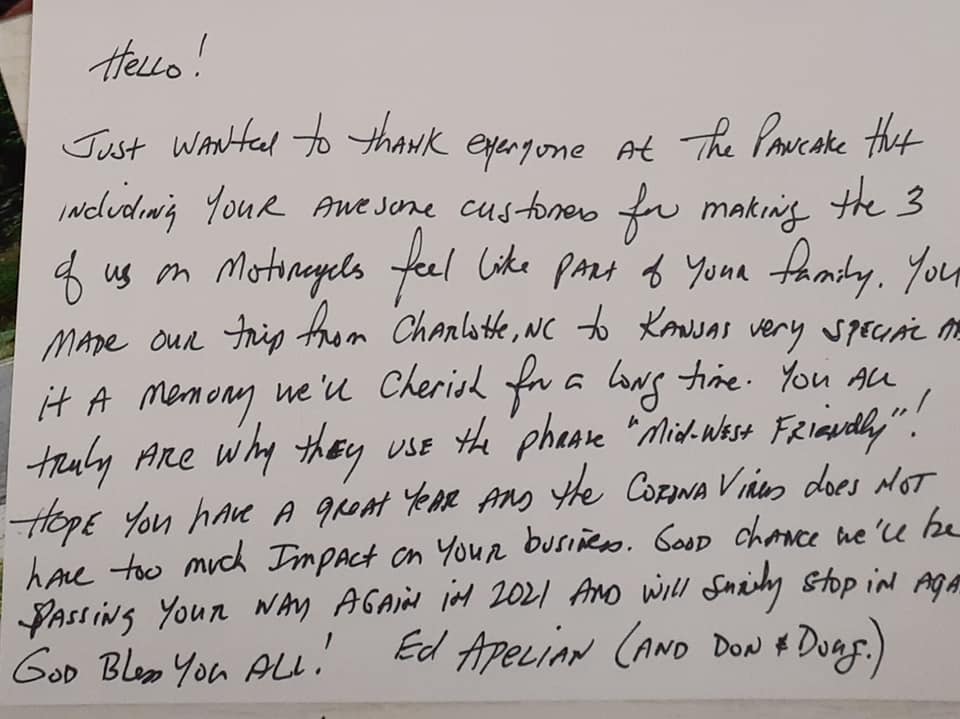 Hello!
Just wanted to thank everyone at the Pancake Hut
including your awesome customers for making the 3
of us on motorcycles feel like part of your family. You
made our trip from Charlotte, NC to Kansas very special
it a memory we'll cherish for a long time. You all
truly are why they use the phrase "Mid-West Friendly"!
Hope you have a great year and the Corona Virus does not
have too much impact on your business. Good chance we'll be
passing your way again in 2021 and will surely stop in
God Bless You All! Ed Apelian (and Don & Doug.)